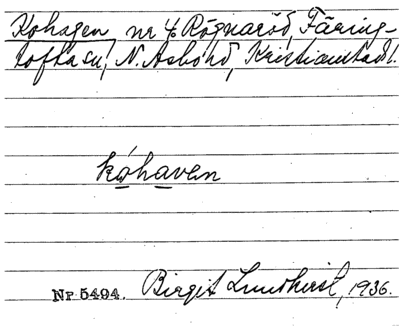 Kohagen nr 4 Rögnaröd, Färing-
tofta sn, N. Åsbo hd, Kristianstads l.
kohaven
Nr. 5494. Birgit Lundkvist, 1936.